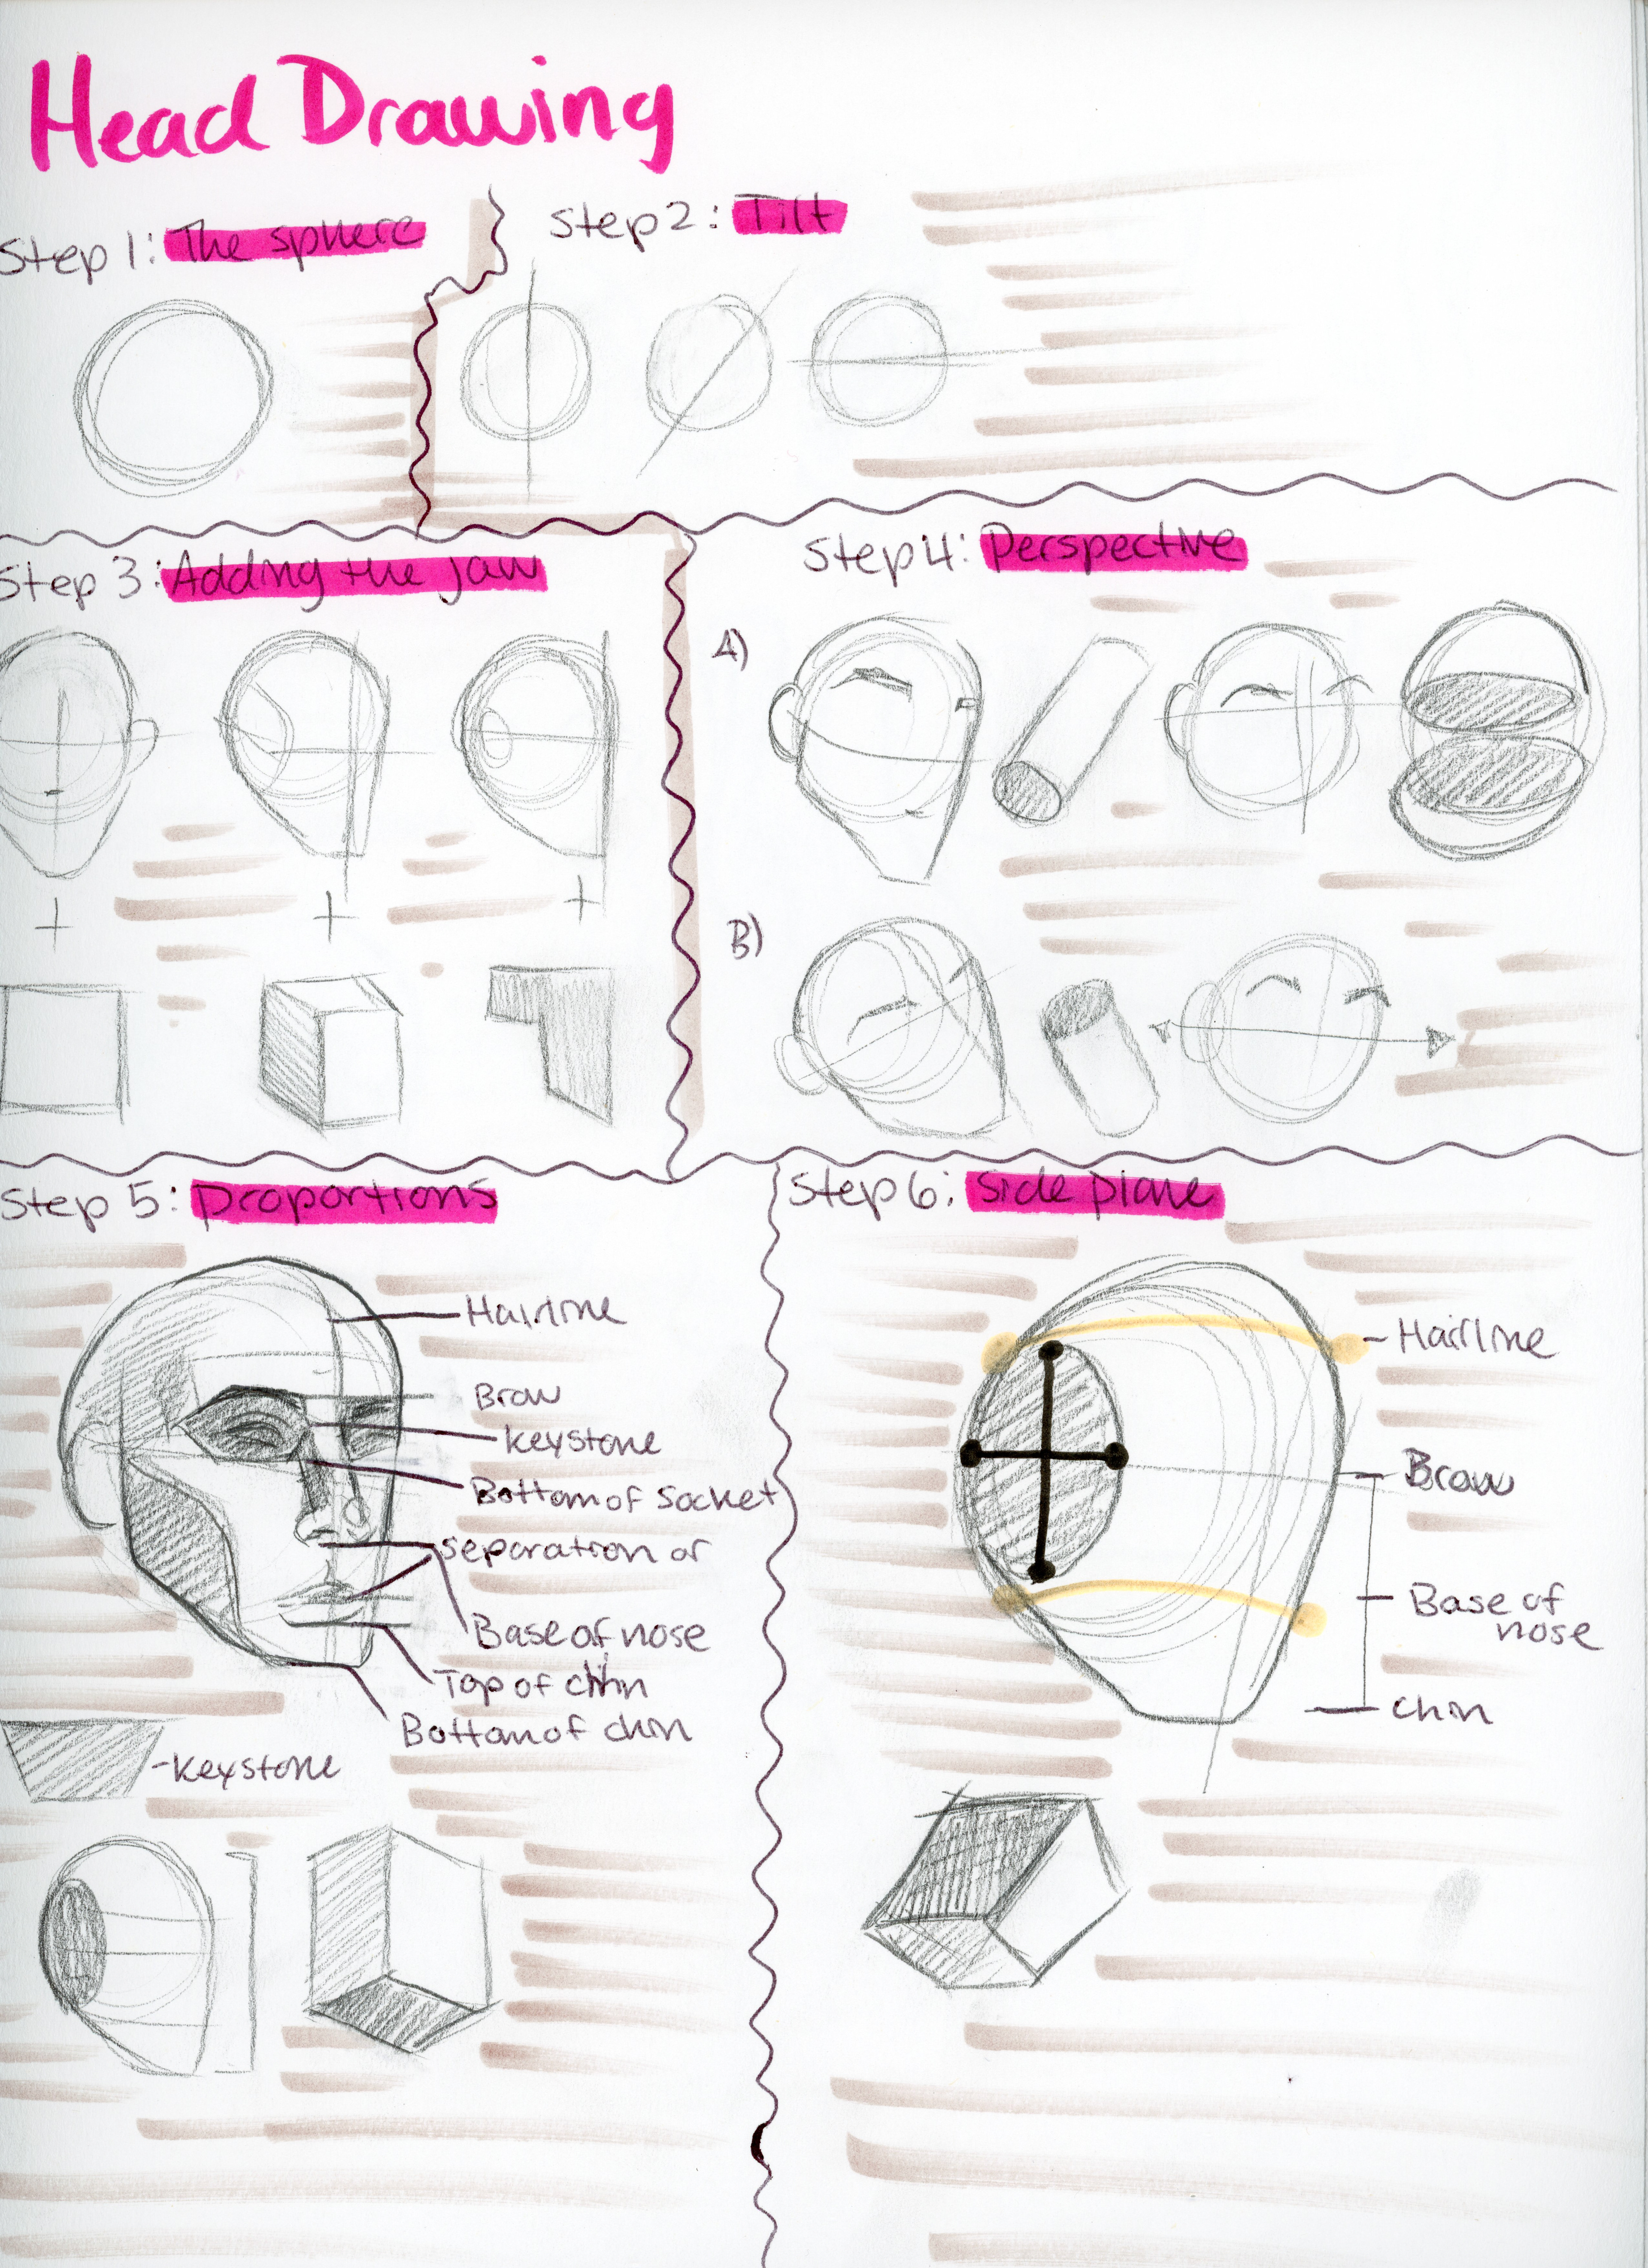 Head Drawing
Step 1: The sphere
Step 2: Tilt
Step 3: Adding the jaw
Step 4: Perspective
A)
B)
Step 5: proportions
Hairline
Brow
keystone
Bottom of socket
separation of
Base of nose
Top of chin
Bottom of chin
-keystone
Step 6: side plane
- Hairline
Brow
Base of
nose
chin